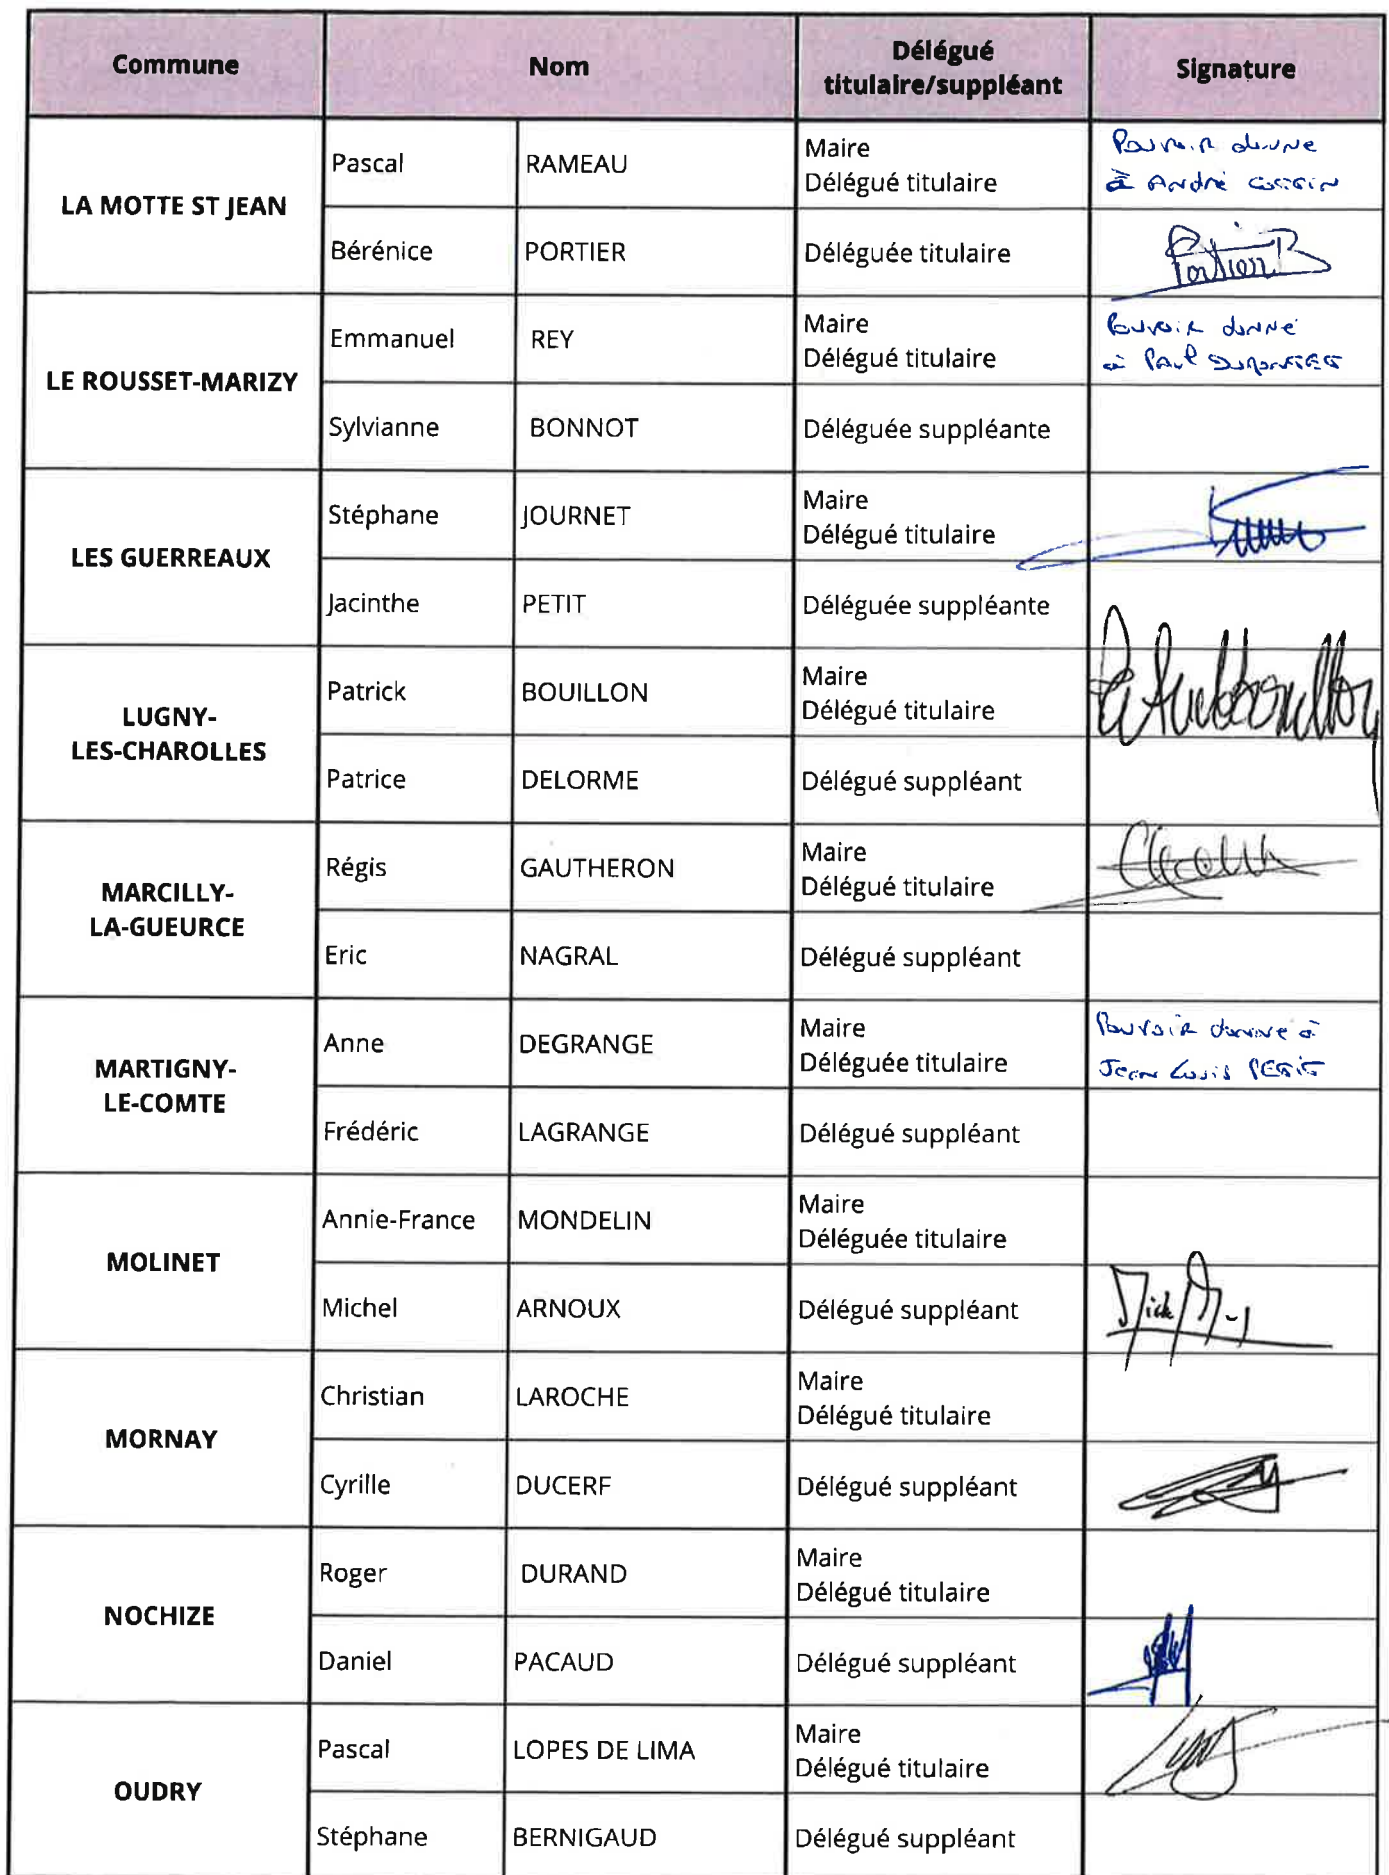 Commune Nom Délégué titulaire/suppléant Signature
LA MOTTE ST JEAN
Pascal RAMEAU Maire Délégué titulaire Pouvoir donne
à André
Bérénice PORTIER Déléguée titulaire Portier B
LE ROUSSET-MARIZY
Emmanuel REY Maire Délégué titulaire Pouvoir donné
à Paul
Sylvianne BONNOT Déléguée suppléante
LES GUERREAUX
Stéphane JOURNET Maire Délégué titulaire
Jacinthe PETIT Déléguée suppléante
LUGNY-
LES-CHAROLLES
Patrick BOUILLON Maire Délégué titulaire
Patrice DELORME Délégué suppléant
MARCILLY-
LA-GUEURCE
Régis GAUTHERON Maire Délégué titulaire
Eric NAGRAL Délégué suppléant
MARTIGNY-
LE-COMTE
Anne DEGRANGE Maire Déléguée titulaire Pouvoir donné à
Jean Louis PETIT
Frédéric LAGRANGE Délégué suppléant
MOLINET
Annie-France MONDELIN Maire Déléguée titulaire
Michel ARNOUX Délégué suppléant
MORNAY
Christian LAROCHE Maire Délégué titulaire
Cyrille DUCERF Délégué suppléant
NOCHIZE
Roger DURAND Maire Délégué titulaire
Daniel PACAUD Délégué suppléant
OUDRY
Pascal LOPES DE LIMA Maire Délégué titulaire
Stéphane BERNIGAUD Délégué suppléant